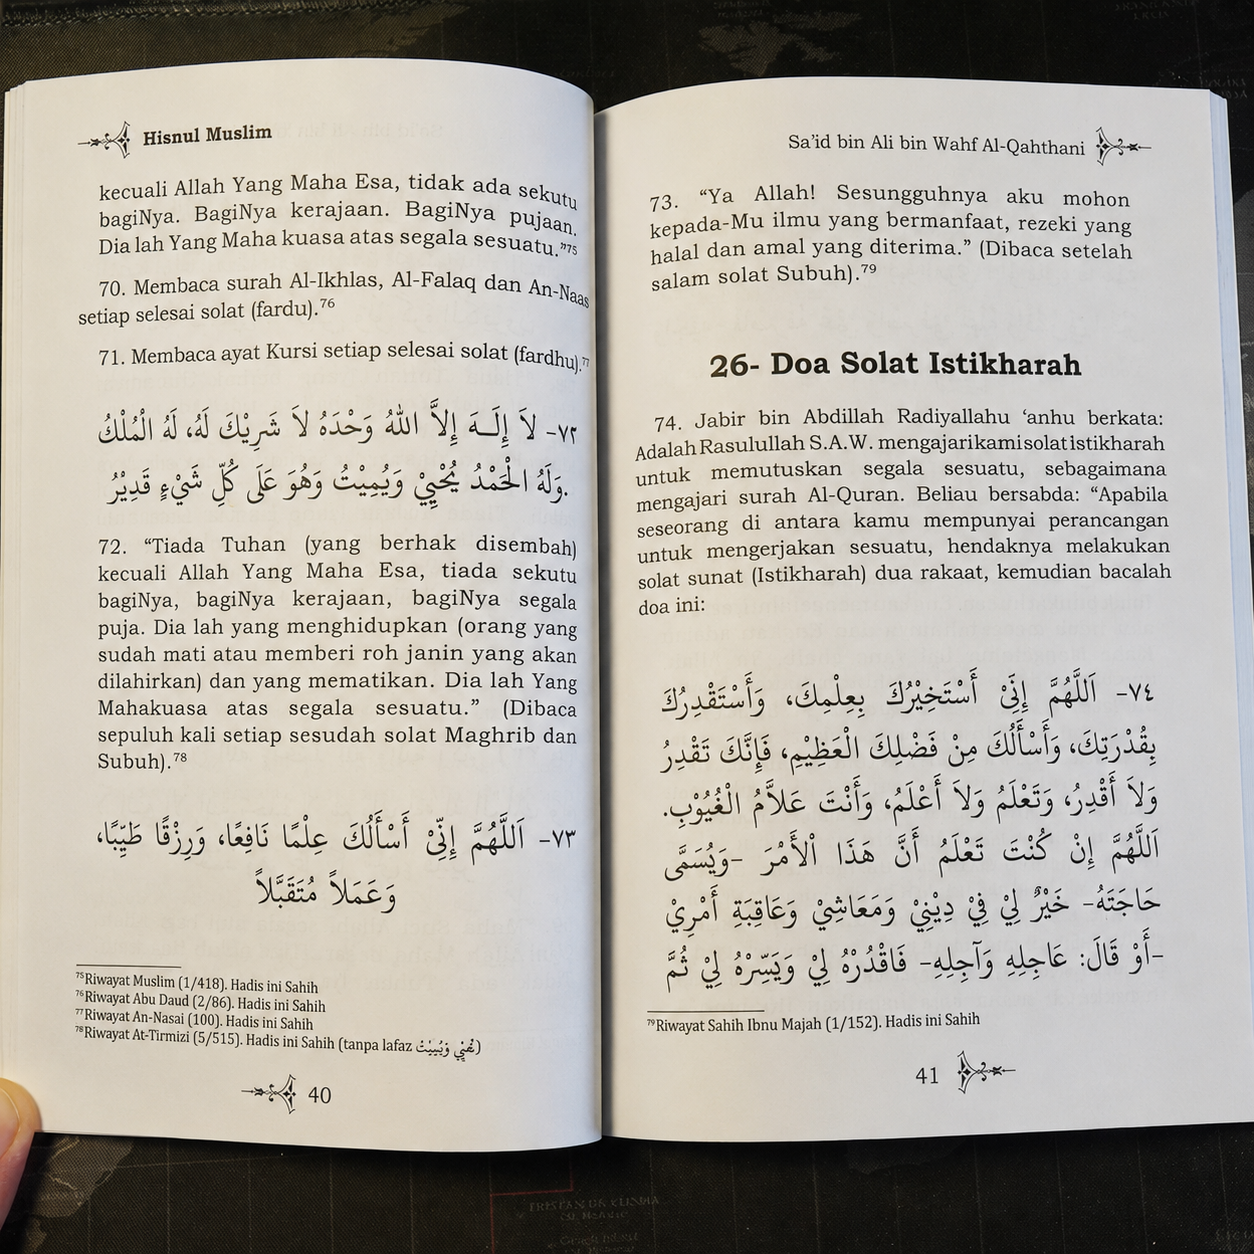 Hisnul Muslim
kecuali Allah Yang Maha Esa, tidak ada sekutu
bagiNya. BagiNya kerajaan. BagiNya pujaan.
Dia lah Yang Maha kuasa atas segala sesuatu.”⁷⁵
70. Membaca surah Al-Ikhlas, Al-Falaq dan An-Naas
setiap selesai solat (fardu).⁷⁶
71. Membaca ayat Kursi setiap selesai solat (fardhu).⁷⁷
٧٢- لاَ إِلَـهَ إِلاَّ اللهُ وَحْدَهُ لاَ شَرِيْكَ لَهُ، لَهُ الْمُلْكُ
وَلَهُ الْحَمْدُ يُحْيِيْ وَيُمِيْتُ وَهُوَ عَلَى كُلِّ شَيْءٍ قَدِيْرُ.
72. “Tiada Tuhan (yang berhak disembah)
kecuali Allah Yang Maha Esa, tiada sekutu
bagiNya, bagiNya kerajaan, bagiNya segala
puja. Dia lah yang menghidupkan (orang yang
sudah mati atau memberi roh janin yang akan
dilahirkan) dan yang mematikan. Dia lah Yang
Mahakuasa atas segala sesuatu.” (Dibaca
sepuluh kali setiap sesudah solat Maghrib dan
Subuh).⁷⁸
٧٣- اَللَّهُمَّ إِنِّيْ أَسْأَلُكَ عِلْمًا نَافِعًا، وَرِزْقًا طَيِّبًا،
وَعَمَلاً مُتَقَبَّلاً
⁷⁵Riwayat Muslim (1/418). Hadis ini Sahih
⁷⁶Riwayat Abu Daud (2/86). Hadis ini Sahih
⁷⁷Riwayat An-Nasai (100). Hadis ini Sahih
⁷⁸Riwayat At-Tirmizi (5/515). Hadis ini Sahih (tanpa lafaz
40
Sa’id bin Ali bin Wahf Al-Qahthani
73. “Ya Allah! Sesungguhnya aku mohon
kepada-Mu ilmu yang bermanfaat, rezeki yang
halal dan amal yang diterima.” (Dibaca setelah
salam solat Subuh).⁷⁹
26- Doa Solat Istikharah
74. Jabir bin Abdillah Radiyallahu ‘anhu berkata:
Adalah Rasulullah S.A.W. mengajari kami solat istikharah
untuk memutuskan segala sesuatu, sebagaimana
mengajari surah Al-Quran. Beliau bersabda: “Apabila
seseorang di antara kamu mempunyai perancangan
untuk mengerjakan sesuatu, hendaknya melakukan
solat sunat (Istikharah) dua rakaat, kemudian bacalah
doa ini:
٧٤- اَللَّهُمَّ إِنِّيْ أَسْتَخِيْرُكَ بِعِلْمِكَ، وَأَسْتَقْدِرُكَ
بِقُدْرَتِكَ، وَأَسْأَلُكَ مِنْ فَضْلِكَ الْعَظِيْمِ، فَإِنَّكَ تَقْدِرُ
وَلاَ أَقْدِرُ، وَتَعْلَمُ وَلاَ أَعْلَمُ، وَأَنْتَ عَلاَّمُ الْغُيُوْبِ.
اَللَّهُمَّ إِنْ كُنْتَ تَعْلَمُ أَنَّ هَذَا الْأَمْرَ -وَيُسَمَّى
حَاجَتَهُ- خَيْرٌ لِيْ فِيْ دِيْنِيْ وَمَعَاشِيْ وَعَاقِبَةِ أَمْرِيْ
-أَوْ قَالَ: عَاجِلِهِ وَآجِلِهِ- فَاقْدُرْهُ لِيْ وَيَسِّرْهُ لِيْ ثُمَّ
⁷⁹Riwayat Sahih Ibnu Majah (1/152). Hadis ini Sahih
41